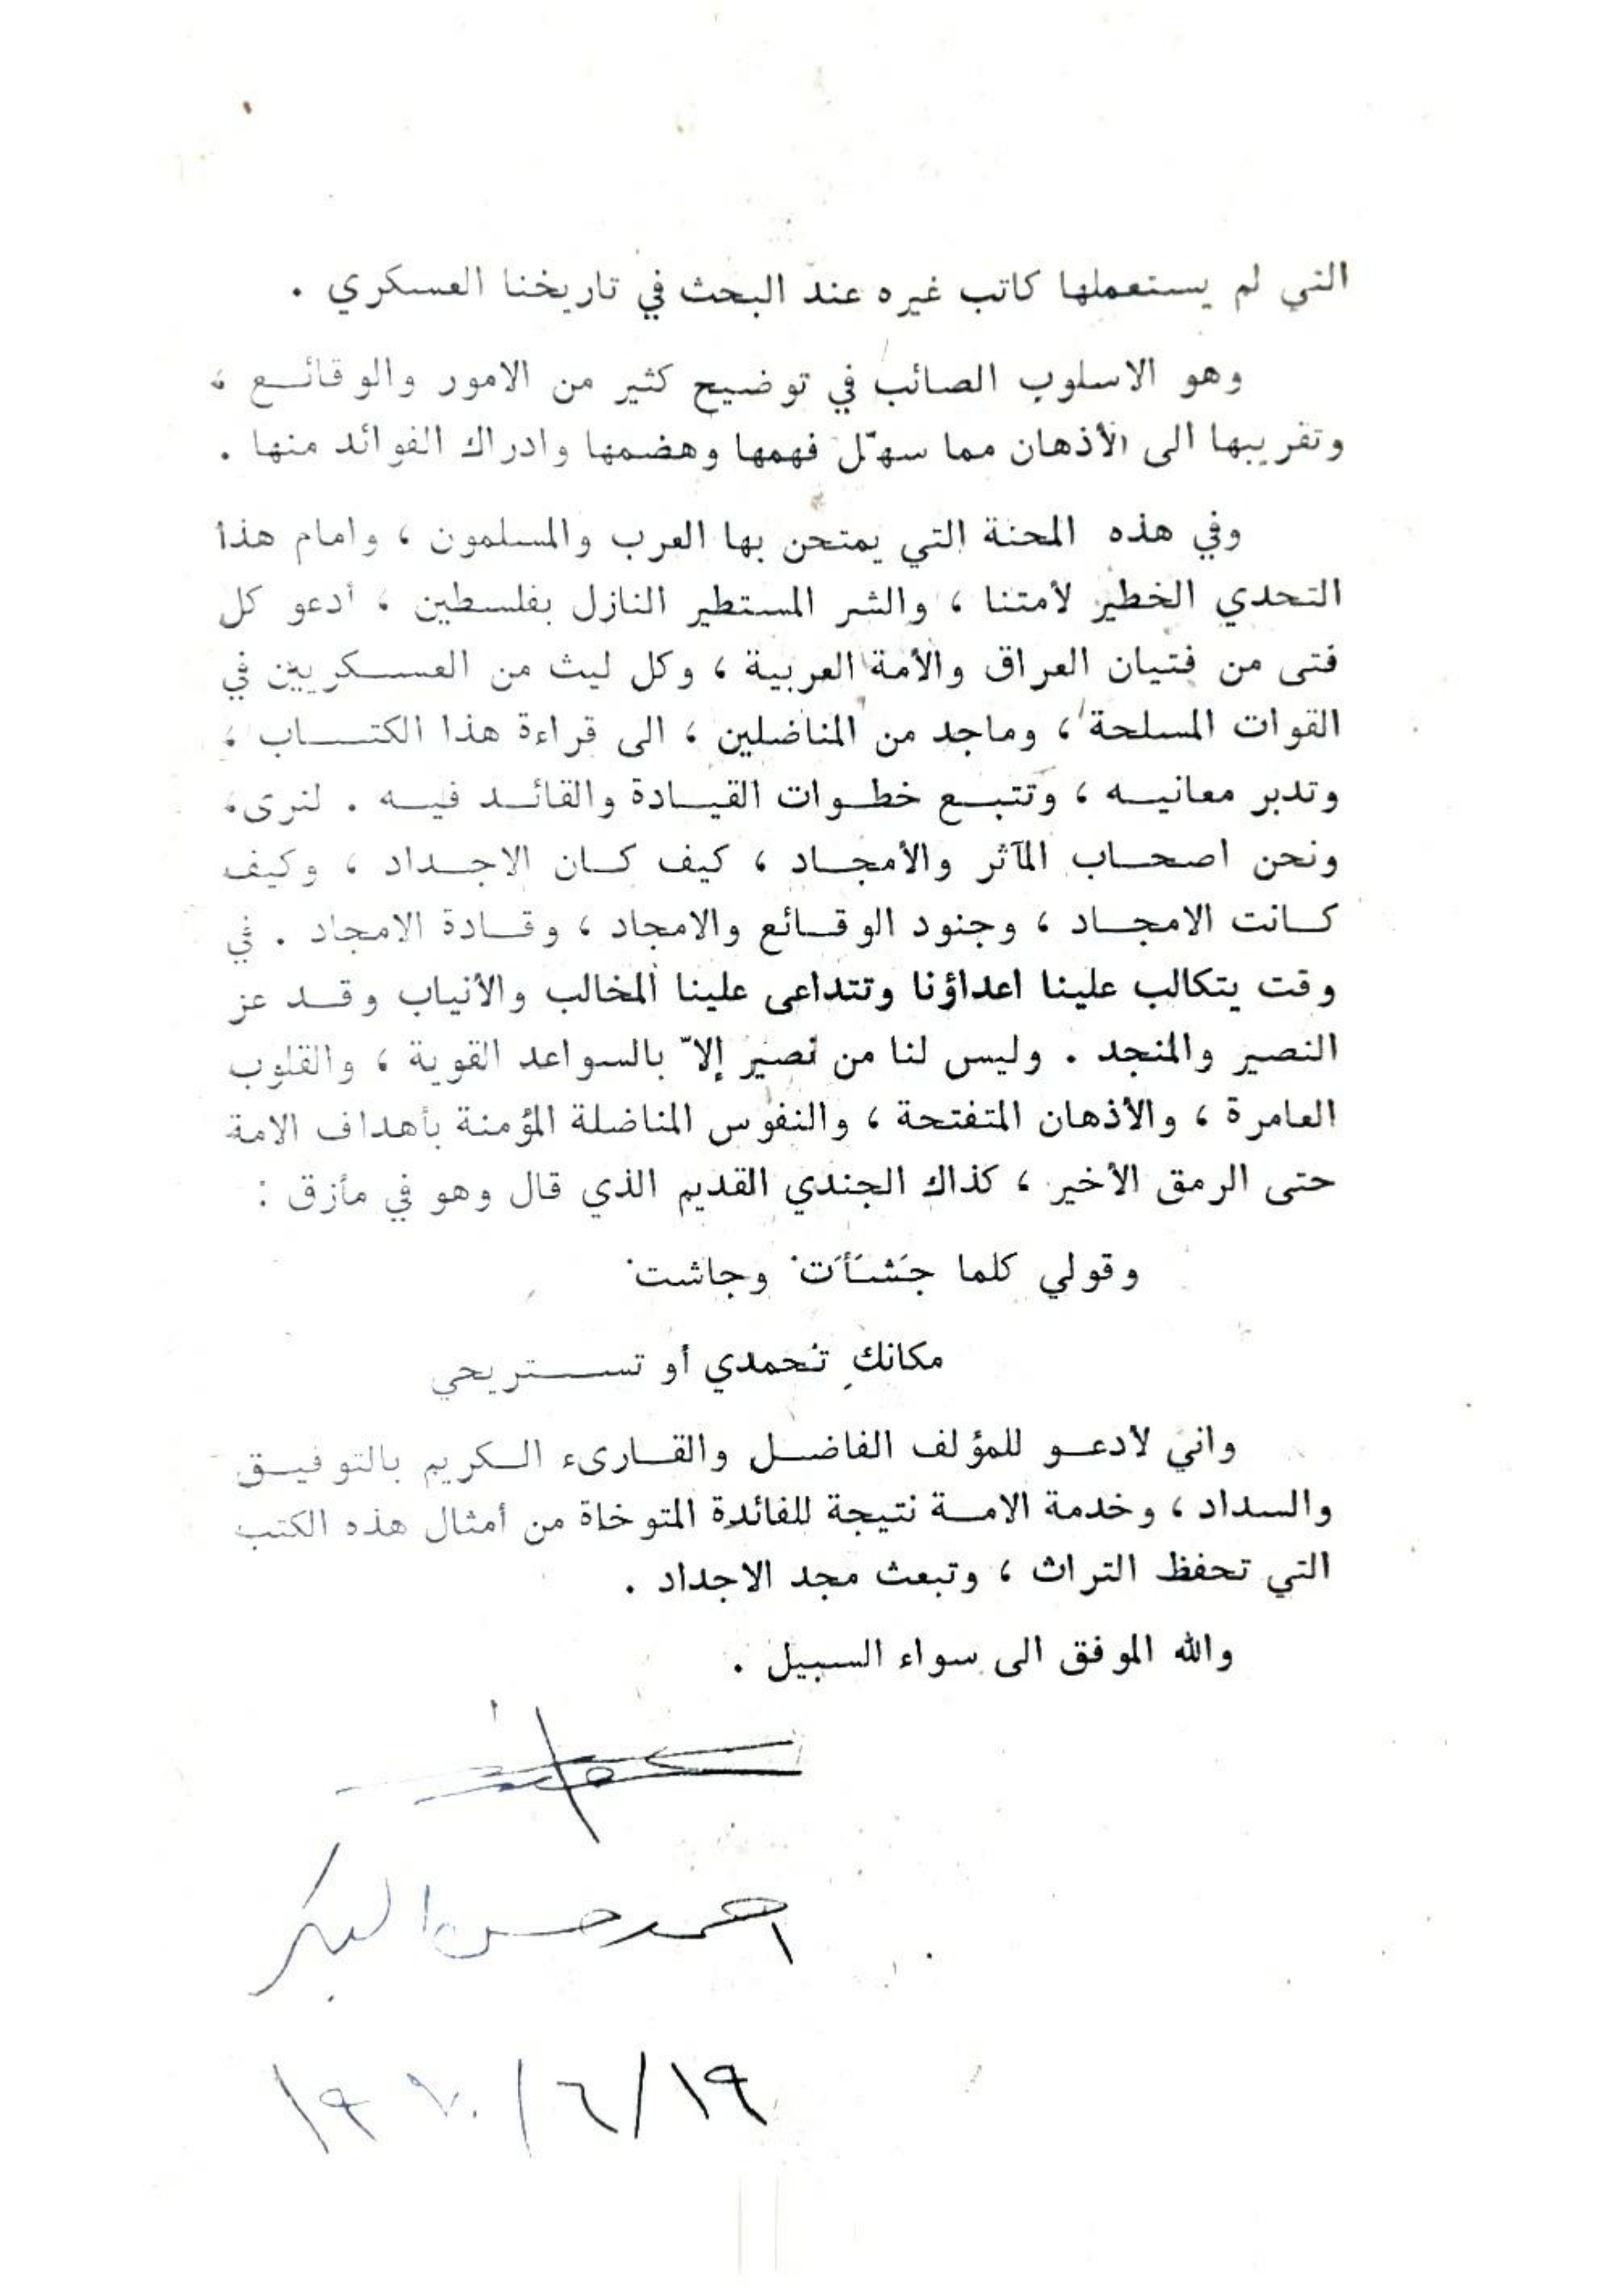 التي لم يستعملها كاتب غيره عند البحث في تاريخنا العسكري .
وهو الاسلوب الصائب في توضيح كثير من الامور والوقائع ،
وتقريبها الى الأذهان مما سهّل فهمها وهضمها وادراك الفوائد منها .
وفي هذه المحنة التي يمتحن بها العرب والمسلمون ، وامام هذا
التحدي الخطير لأمتنا ، والشر المستطير النازل بفلسطين ، أدعو كل
فتى من فتيان العراق والأمة العربية ، وكل ليث من العسكريين في
القوات المسلحة ، وماجد من المناضلين ، الى قراءة هذا الكتاب ،
وتدبر معانيه ، وتتبع خطوات القيادة والقائد فيه . لنرى ،
ونحن اصحاب المآثر والأمجاد ، كيف كان الاجداد ، وكيف
كانت الامجاد ، وجنود الوقائع والامجاد ، وقادة الامجاد . في
وقت يتكالب علينا اعداؤنا وتتداعى علينا المخالب والأنياب وقد عز
النصير والمنجد . وليس لنا من نصير إلاّ بالسواعد القوية ، والقلوب
العامرة ، والأذهان المتفتحة ، والنفوس المناضلة المؤمنة بأهداف الامة
حتى الرمق الأخير ، كذاك الجندي القديم الذي قال وهو في مأزق :
وقولي كلما جَشَأَتْ وجاشتْ
مكانكِ تُحمدي أو تستريحي
واني لأدعو للمؤلف الفاضل والقارىء الكريم بالتوفيق
والسداد ، وخدمة الامة نتيجة للفائدة المتوخاة من أمثال هذه الكتب
التي تحفظ التراث ، وتبعث مجد الاجداد .
والله الموفق الى سواء السبيل .
احمد حسن البكر
١٩/٦/١٩٧٠